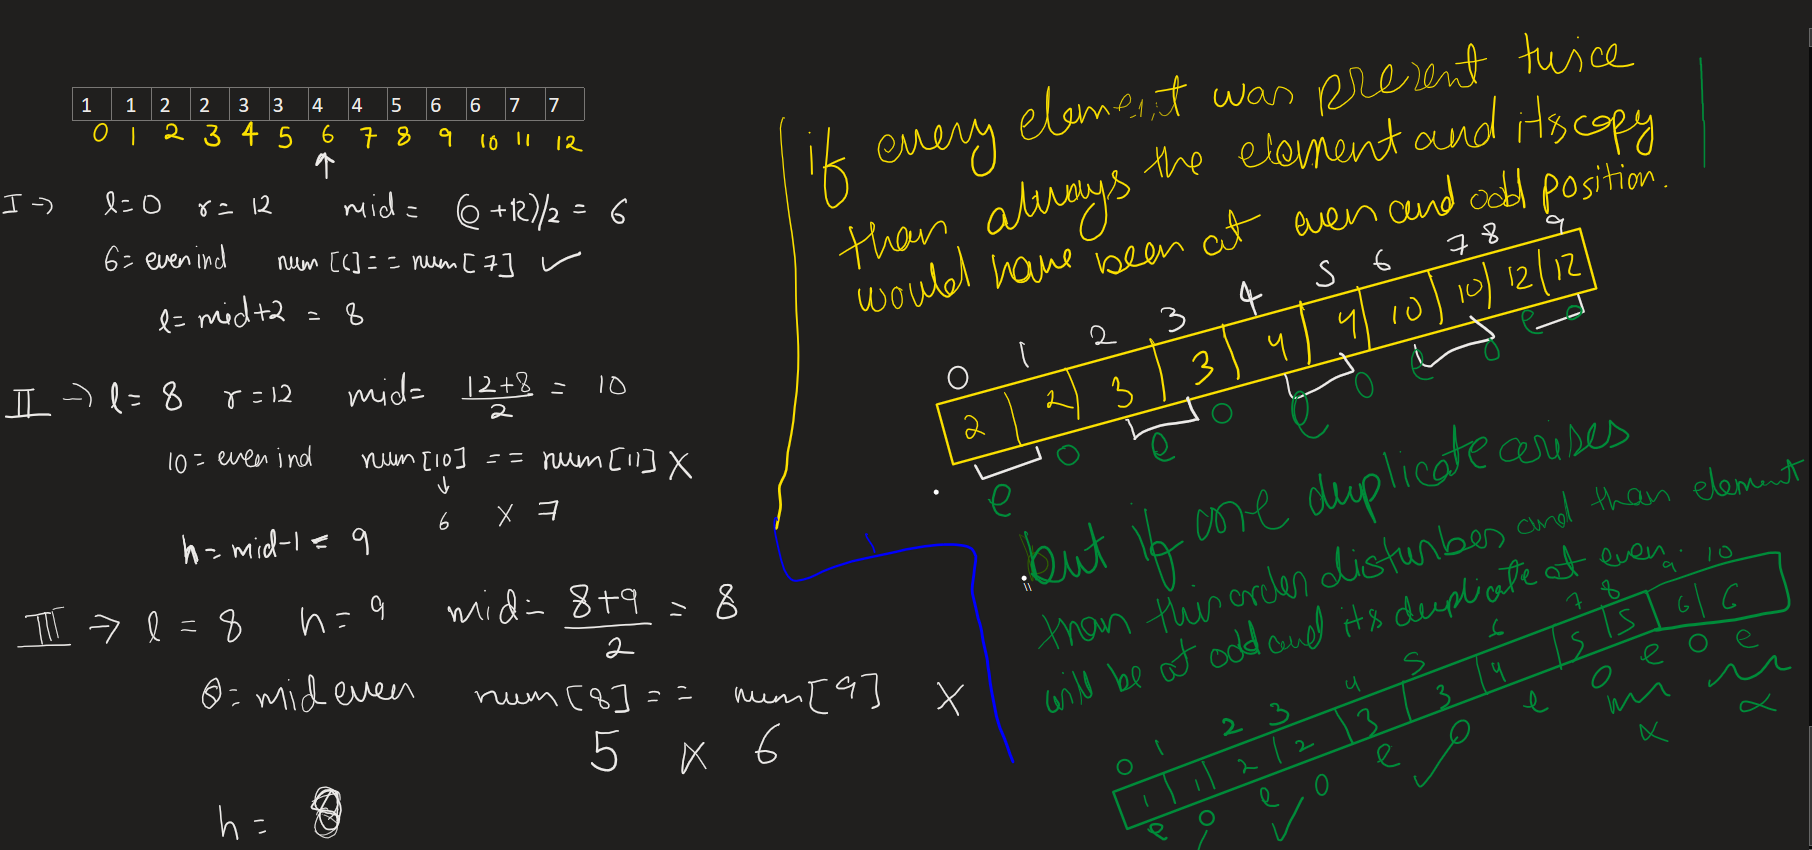 1 1 2 2 3 3 4 4 5 6 6 7 7
0 1 2 3 4 5 6 7 8 9 10 11 12
I → l=0 r=12 mid = (0+12)/2 = 6
6= even ind num[6]==num[7] ✓
l=mid+2 = 8
II → l=8 r=12 mid= 12+8/2 = 10
10=even ind num[10] == num[11] X
↓
6 X 7
h=mid-1 = 9
III → l=8 h=9 mid= 8+9/2 = 8
8=mid even num[8]== num[9] X
5 X 6
h= 8
if every element was present twice
than always the element and its copy
would have been at even and odd position.
0 1 2 3 4 5 6 7 8 9
2 2 3 3 4 4 10 10 12 12
e o e o e o e o e o
but if one duplicate arises
than this order disturbes and than element
will be at odd and its duplicate at even.
0 1 2 3 4 5 6 7 8 9 10
1 1 2 2 3 3 4 5 5 6 6
e o e o e o e o e o e
✓ ✓ X X